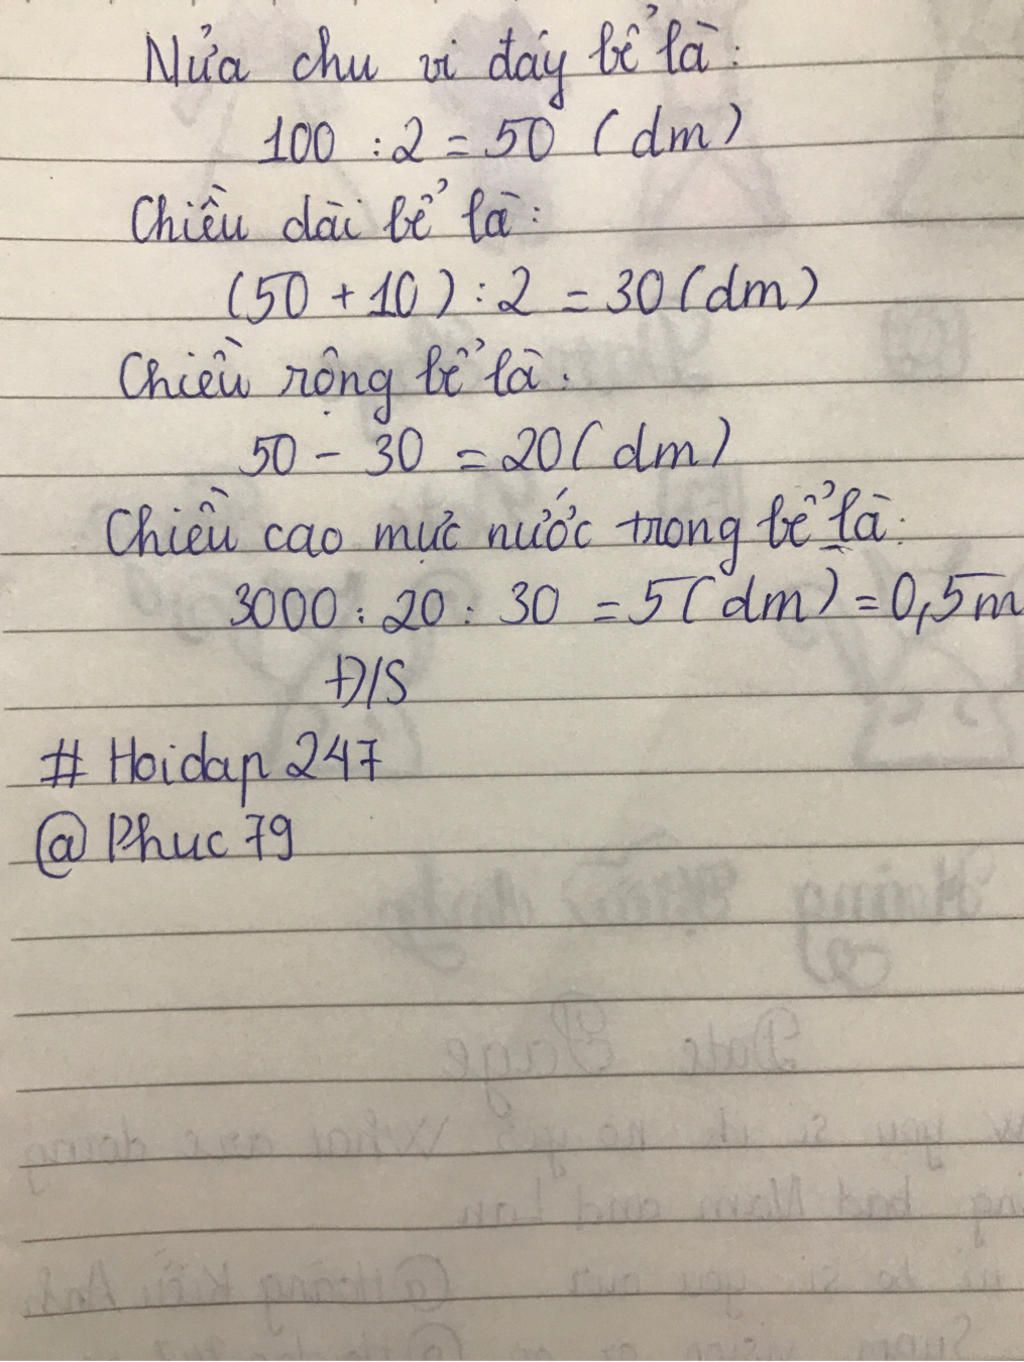 Nửa chu vi đáy bể là:
100 : 2 = 50 (dm)
Chiều dài bể là:
(50 + 10) : 2 = 30 (dm)
Chiều rộng bể là.
50 - 30 = 20 (dm)
Chiều cao mực nước trong bể là:
3000 : 20 : 30 = 5 (dm) = 0,5m
Đ/S
# Hoidap 247
@Phuc79
Date Page